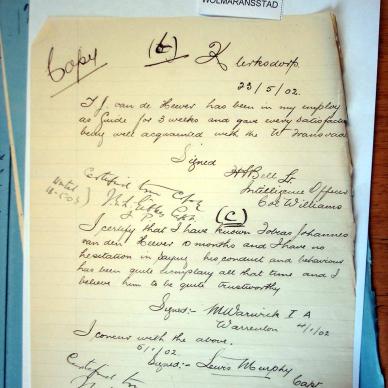 WOLMARANSSTAD
Copy
(b)
Klerksdorp.
23/5/02.
T J. van de Hever has been in my employ
as Guide for 3 weeks and gave every satisfaction
being well acquainted with the W Transvaal
Signed
H S Bell Lt.
Intelligence Officer
Col Williams
Certified true Copy
Capt
J. P.
(C)
I certify that I have known Tobias Johannes
van den Hever 10 months and I have no
hesitation in saying his conduct and behaviour
has been quite exemplary all that time and I
believe him to be quite trustworthy
Signed:- M Warwick I A
Warrenton 4/1/02
I concur with the above.
6/1/02. Signed:- Lewis Murphy
Capt
Certified true